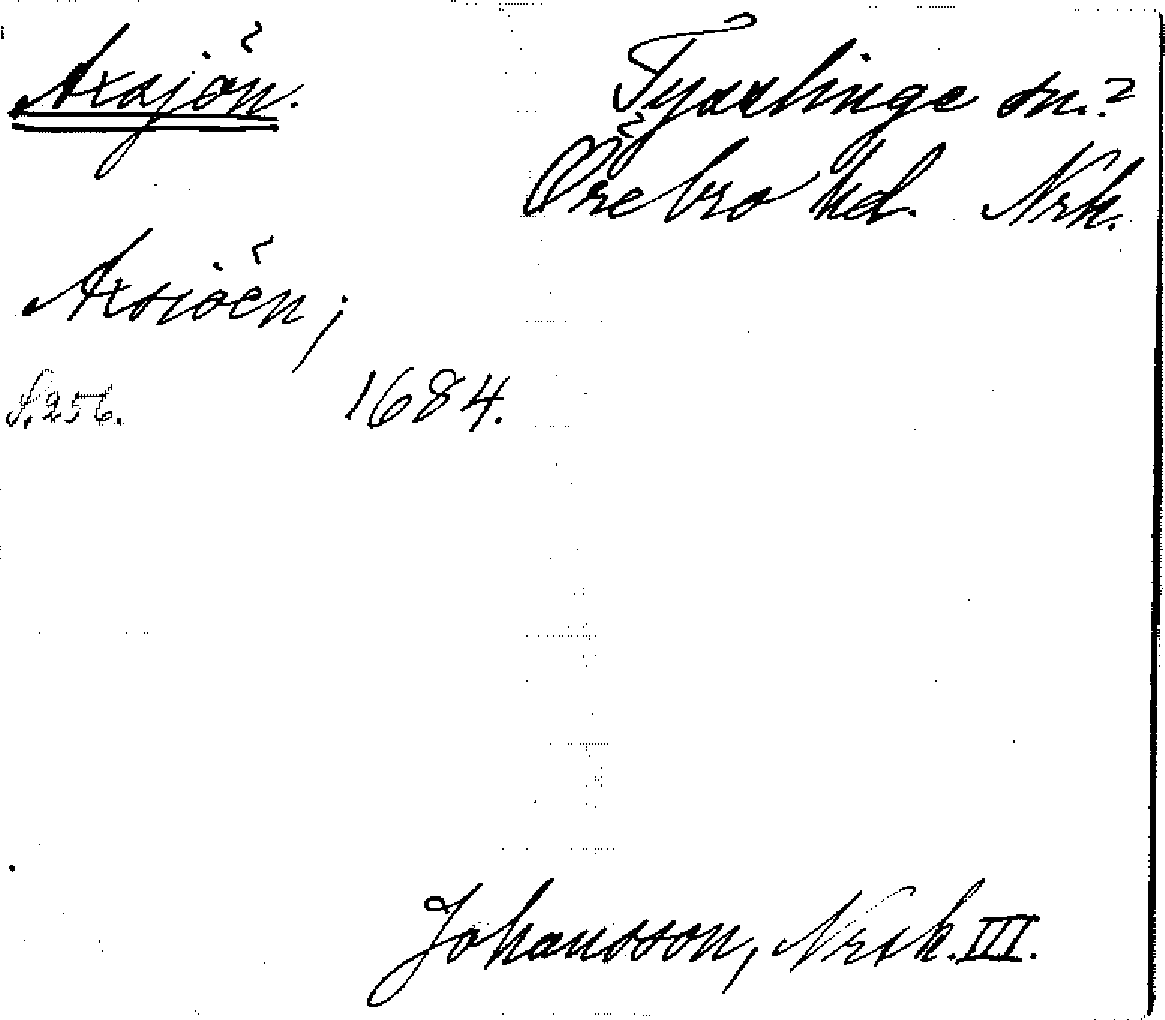 Axsjön.
Tysslinge sn.?
Örebro hd. Nrk.
Axsiöen;
S. 256. 1684.
Johansson, Nrsk. III.